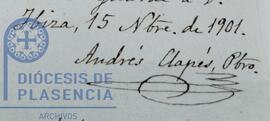 Ibiza, 15 Nbre. de 1901.
Andrés Clapés, Pbro.
DIÓCESIS DE
PLASENCIA
ARCHIVOS